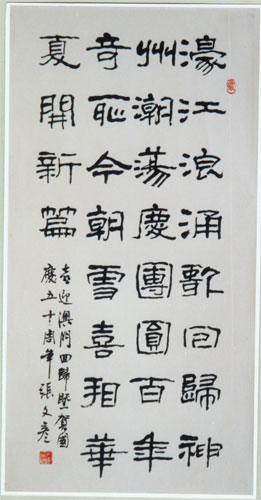 濠江浪涌歌回歸神
州潮蕩慶團圓百年
奇恥今朝雪喜相華
夏開新篇
喜迎澳門回歸暨賀國
慶五十周年 張文彦